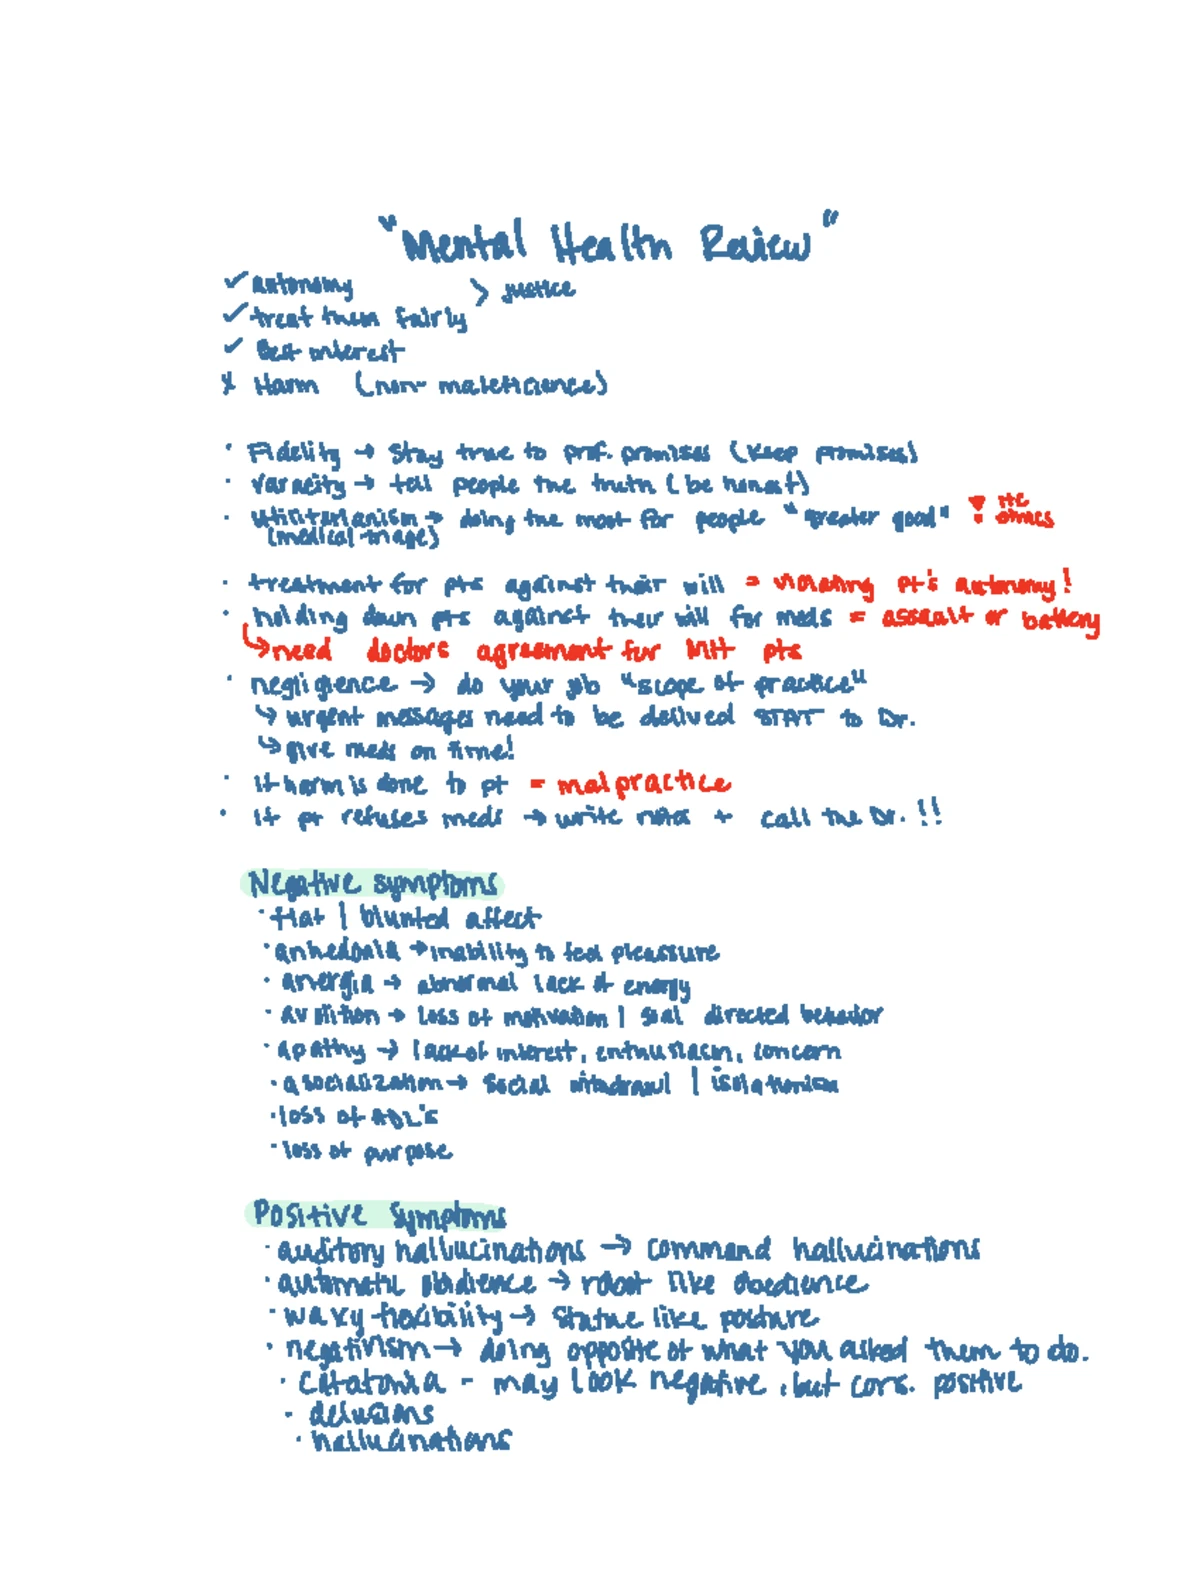 "Mental Health Review"
✓ autonomy > justice
✓ treat them fairly
✓ Best interest
x Harm (non-maleficience)
· Fidelity → stay true to prof. promises (keep promises)
· varacity → tell people the truth (be honest)
· utilitarianism → doing the most for people "greater good" ethics
(medical triage)
· treatment for pts against their will = violating pt's autonomy!
· holding down pts against their will for meds = assault or battery
↳ need doctors agreement for MH pts
· negligience → do your job "scope of practice"
↳ urgent messages need to be delived STAT to Dr.
↳ give meds on time!
· if harm is done to pt = malpractice
· if pt refuses meds → write note + call the Dr. !!
Negative symptoms
· flat | blunted affect
· anhedonia → inability to feel pleasure
· anergia → abnormal lack of energy
· avolition → loss of motivation | goal directed behavior
· apathy → lack of interest, enthusiasm, concern
· asocialization → social withdrawl | isolationism
· loss of ADL's
· loss of purpose
Positive symptoms
· auditory hallucinations → command hallucinations
· automatic obidience → robot like obedience
· waxy flexibility → statue like posture
· negativism → doing opposite of what you asked them to do.
· catatonia - may look negative, but cons. positive
· delusions
· hallucinations